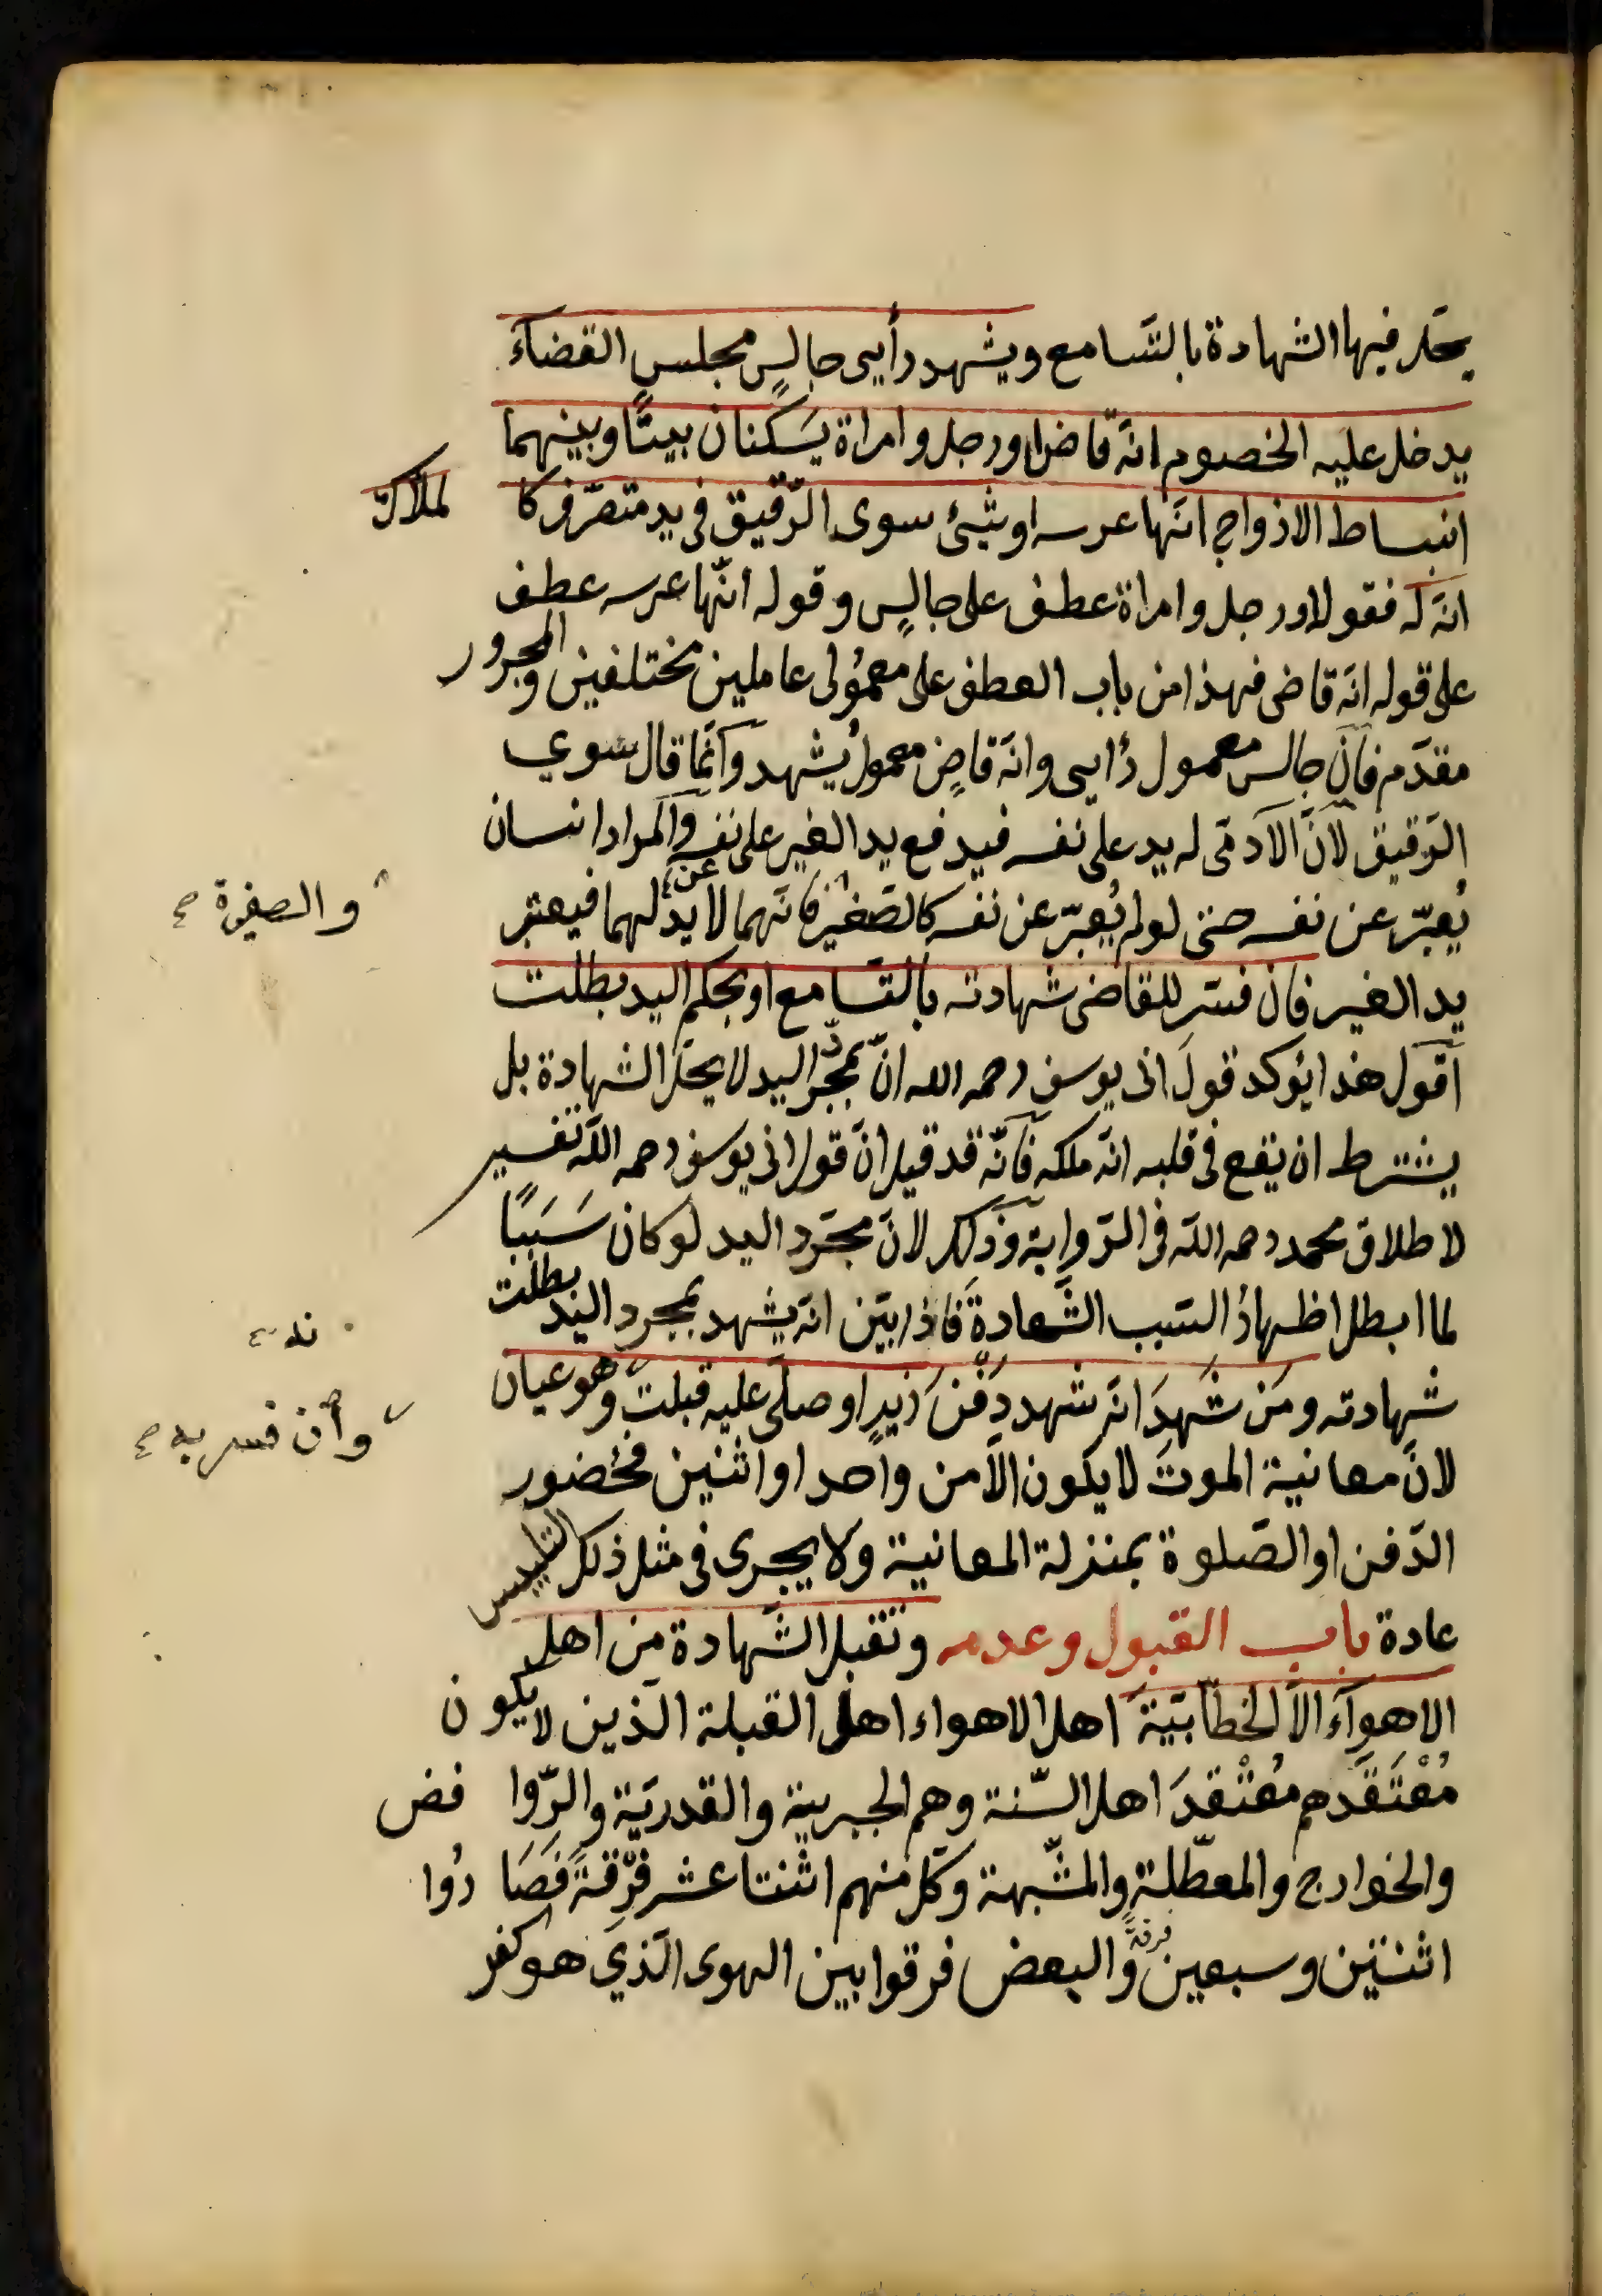 يحلّ فيها الشهادة بالتّسامع ويشهد رأيى جالسٍ مجلس القضآء
يدخل عليه الخصوم انّه قاضٍ او رجل وامراة يَسكنان بيتًا وبينهما
انبساط الازواج انّها عرسه او شئ سوى الرّقيق فى يد متصرّف كالملاك
انّه له فقوله او رجل وامراة عطف على جالسٍ وقوله انّها عرسه عطف
على قوله انّه قاضى فهذا من باب العطف على معمُولى عاملين مختلفين والمجرور
مقدّم فانّ جالس معمول رأيى وانّه قاضٍ معمول يشهد وانّما قال سوي
الرّقيق لانّ الآدمّى له يد على نفسه فيدفع يد الغير عن نفسه والمراد انسان
يُعبّر عن نفسه حتى لو لم يُعبّر عن نفسه كالصّغير فانّهما لا يدّ لهما فيعتبر
والصغيرة صح
يد الغير فان فسّر للقاضى شهادته بالتّسامع او بحكم اليد بطلت
اقول هذا يؤكد قولَ ابى يوسف رحمه الله انّ بمجرّد اليد لا يحلّ الشهادة بل
يشترط ان يقع فى قلبه انّه ملكه فانّه قد قيل انّ قول ابى يوسف رحمه اللّه تفسير
لاطلاق محمد رحمه اللّه فى الرّواية وذلك لانّ مجرّد اليد لو كان سَبَبًا
لما ابطل اظهارُ السّبب الشّهادةَ فاذا بيّن انّه يشهد بمجرد اليد بطلت
شهادته ومَن شَهِدَ انّه شهد دَفْنَ زيدٍ او صلّى عليه قبلت وهو عيان
وأن فسر به صح
لانّ معانية الموتَ لا يكون الاّ من واحد او اثنين فحُضور
الدّفن او الصّلوة بمنزلة المعانية ولا يجرى فى مثل ذلك التلبيس
عادة باب القبول وعدمه وتقبل الشّهادة من اهل
الاهوآء الاّ الخطّابيّةَ اهل الاهواء اهل القبلة الّذين لا يكون
مُعْتَقَدهم مُعْتقدَ اهل السّنة وهم الجبرية والقدريّة والرّوافض
والخوارج والمعطّلةِ والمشّبهة وكلّ منهم اثنتا عشر فرِّقةً فَصَارُوا
اثنتين وسبعين فرقةً والبعض فرقوا بين الهوى الّذي هو كفر